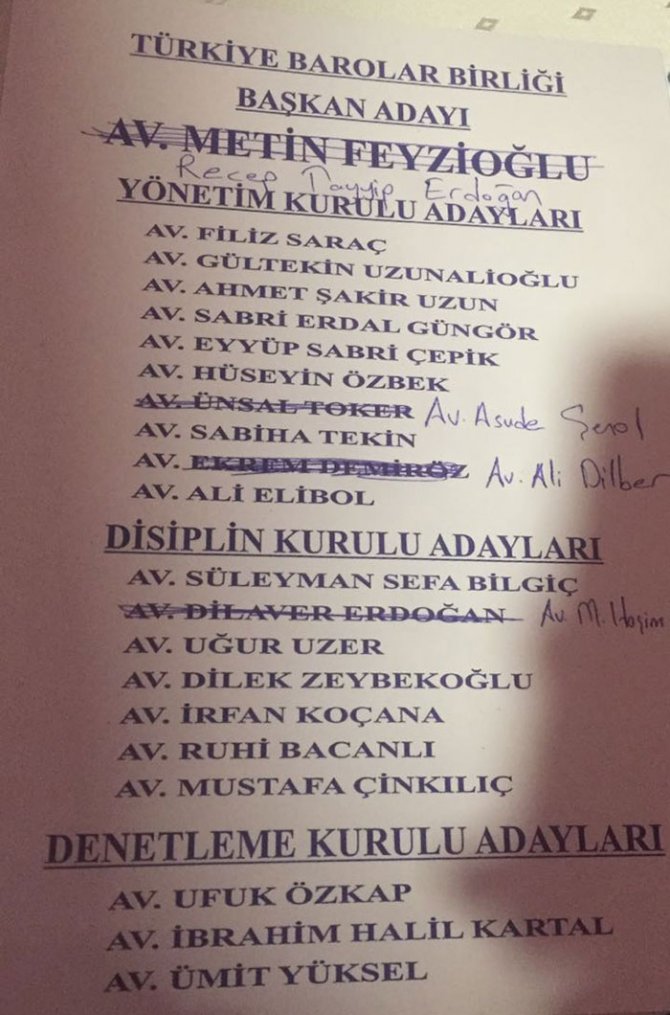 TÜRKİYE BAROLAR BİRLİĞİ
BAŞKAN ADAYI
AV. METİN FEYZİOĞLU
Recep Tayyip Erdoğan
YÖNETİM KURULU ADAYLARI
AV. FİLİZ SARAÇ
AV. GÜLTEKİN UZUNALİOĞLU
AV. AHMET ŞAKİR UZUN
AV. SABRİ ERDAL GÜNGÖR
AV. EYYÜP SABRİ ÇEPİK
AV. HÜSEYİN ÖZBEK
AV. ÜNSAL TOKER Av. Asude Şenol
AV. SABİHA TEKİN
AV. EKREM DEMİRÖZ Av. Ali Dilber
AV. ALİ ELİBOL
DİSİPLİN KURULU ADAYLARI
AV. SÜLEYMAN SEFA BİLGİÇ
AV. DİLAVER ERDOĞAN Av. M. Haşim
AV. UĞUR UZER
AV. DİLEK ZEYBEKOĞLU
AV. İRFAN KOÇANA
AV. RUHİ BACANLI
AV. MUSTAFA ÇİNKILIÇ
DENETLEME KURULU ADAYLARI
AV. UFUK ÖZKAP
AV. İBRAHİM HALİL KARTAL
AV. ÜMİT YÜKSEL